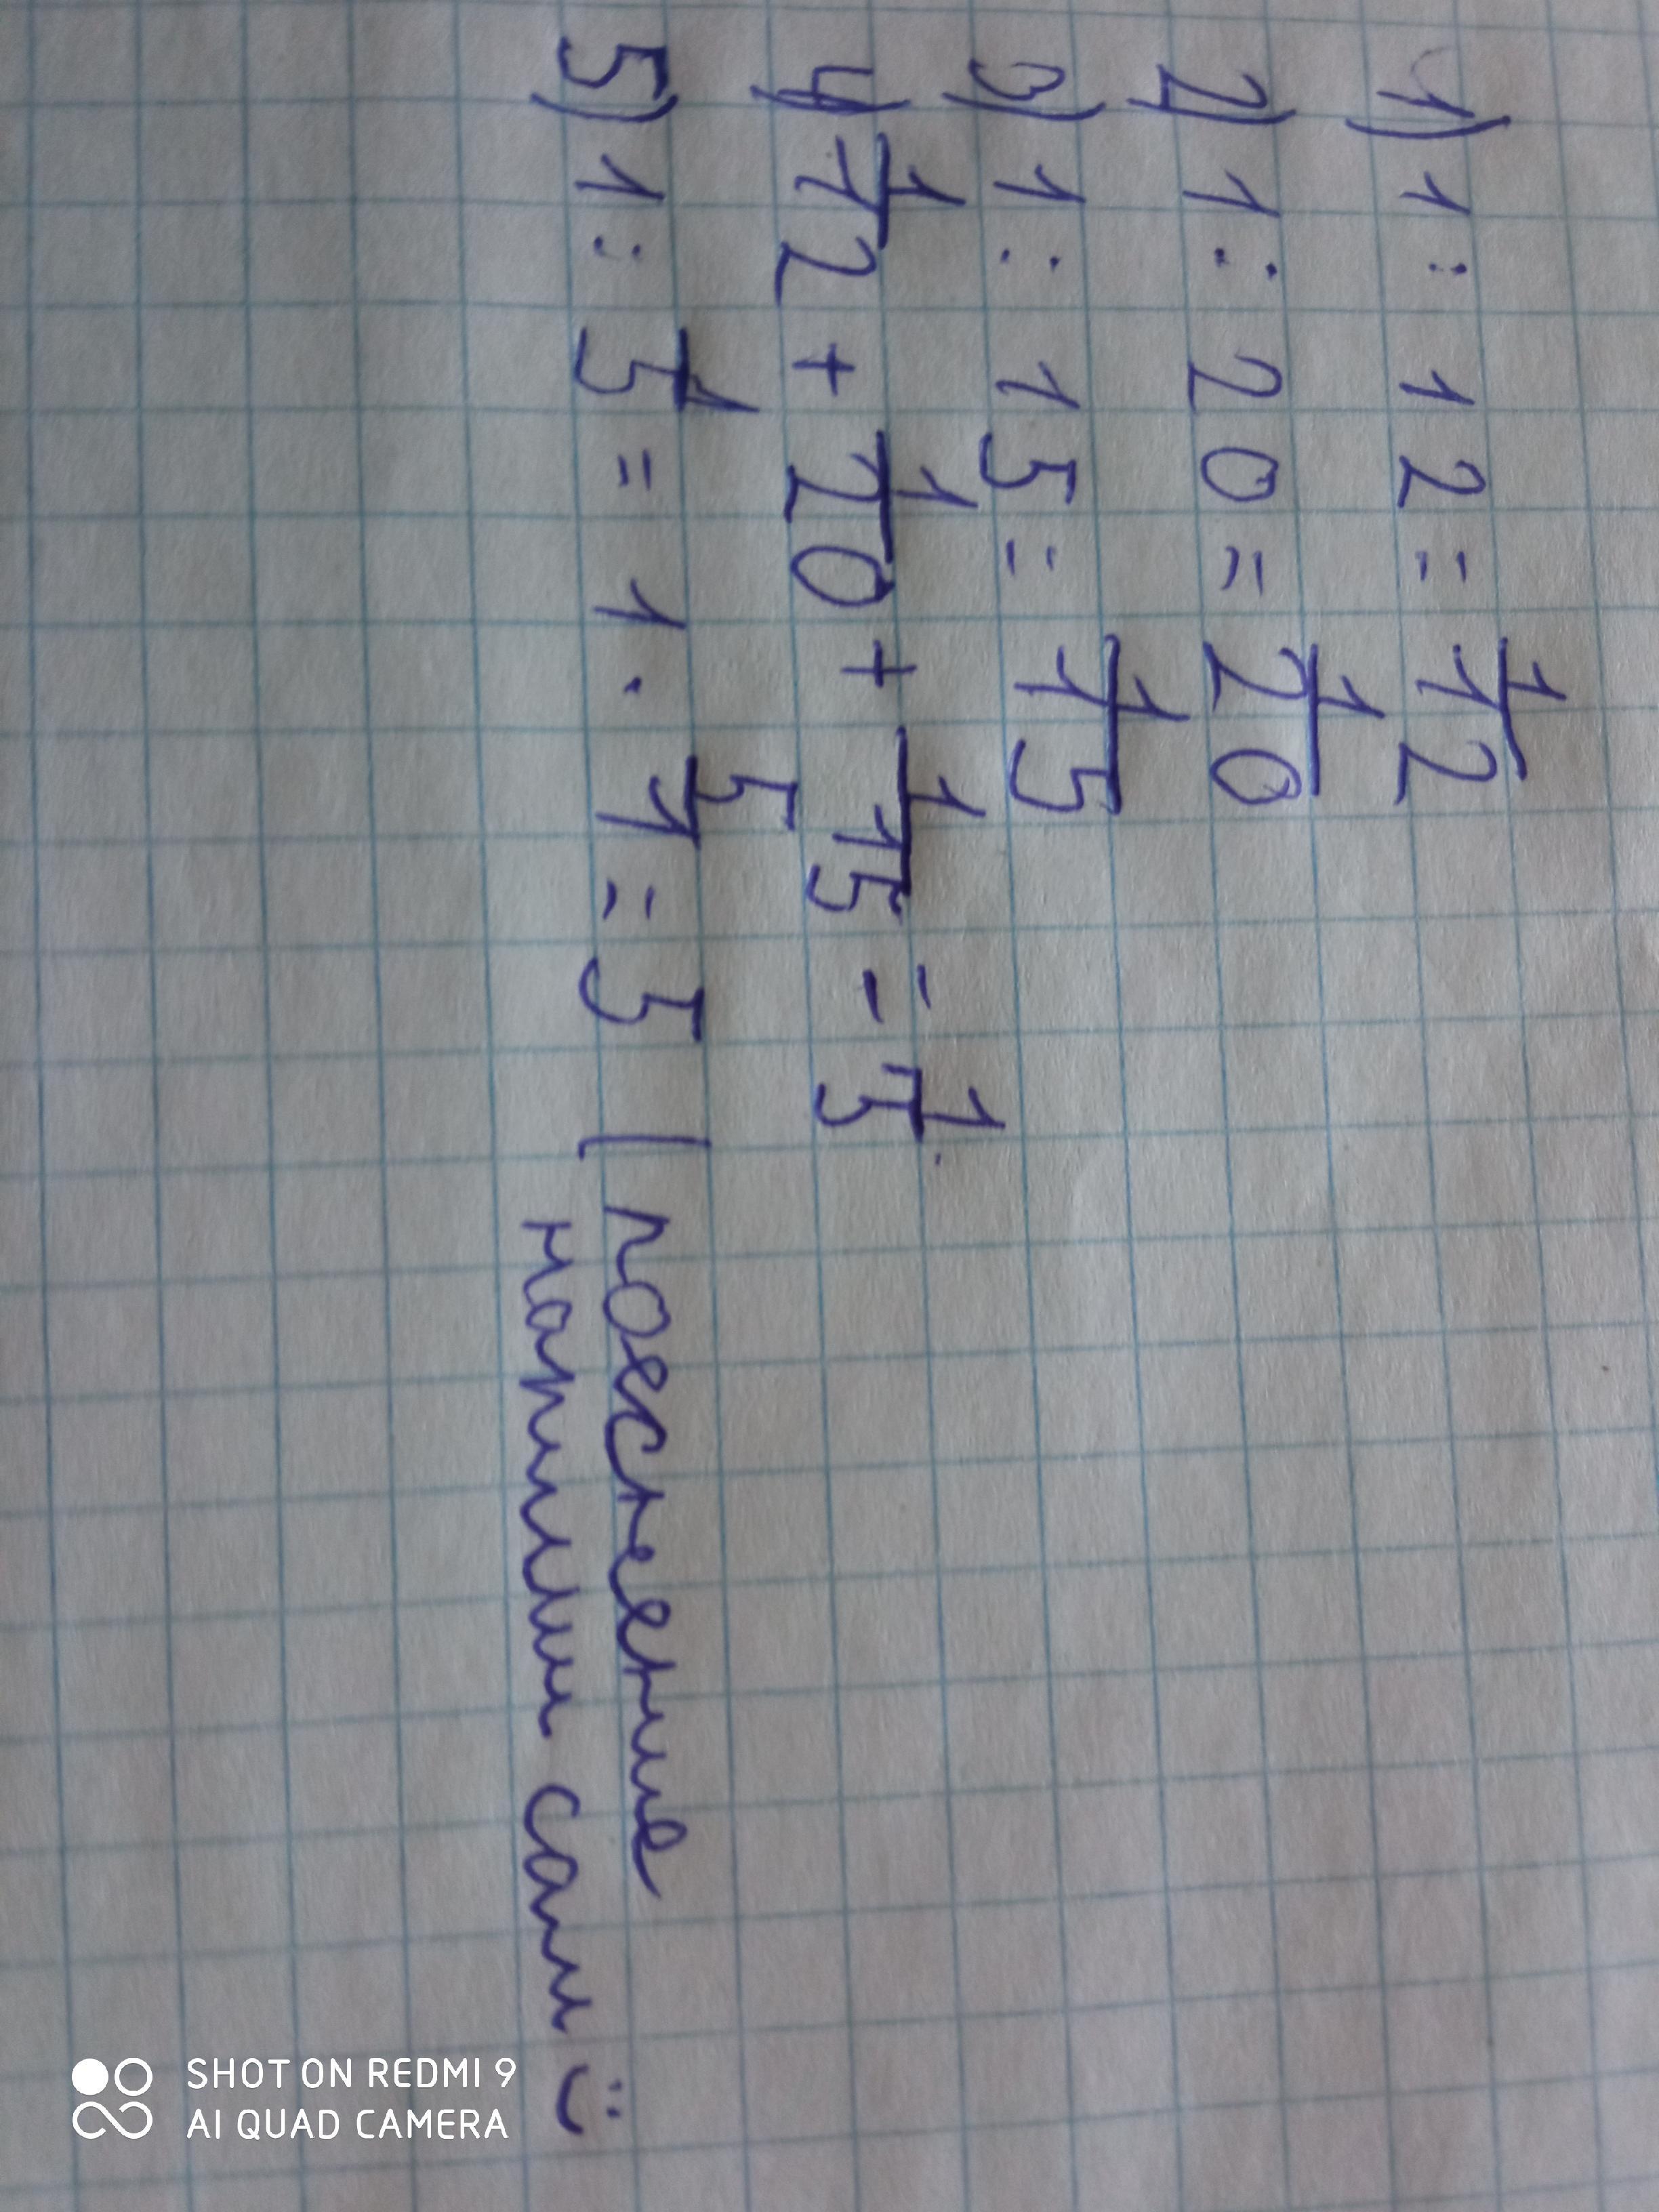 1) 1 : 12 = 1/12
2) 1 : 20 = 1/20
3) 1 : 15 = 1/15
4) 1/12 + 1/20 + 1/15 = 1/5
5) 1 : 1/5 = 1 · 5/1 = 5 | поеснение
напиши сам
SHOT ON REDMI 9
AI QUAD CAMERA